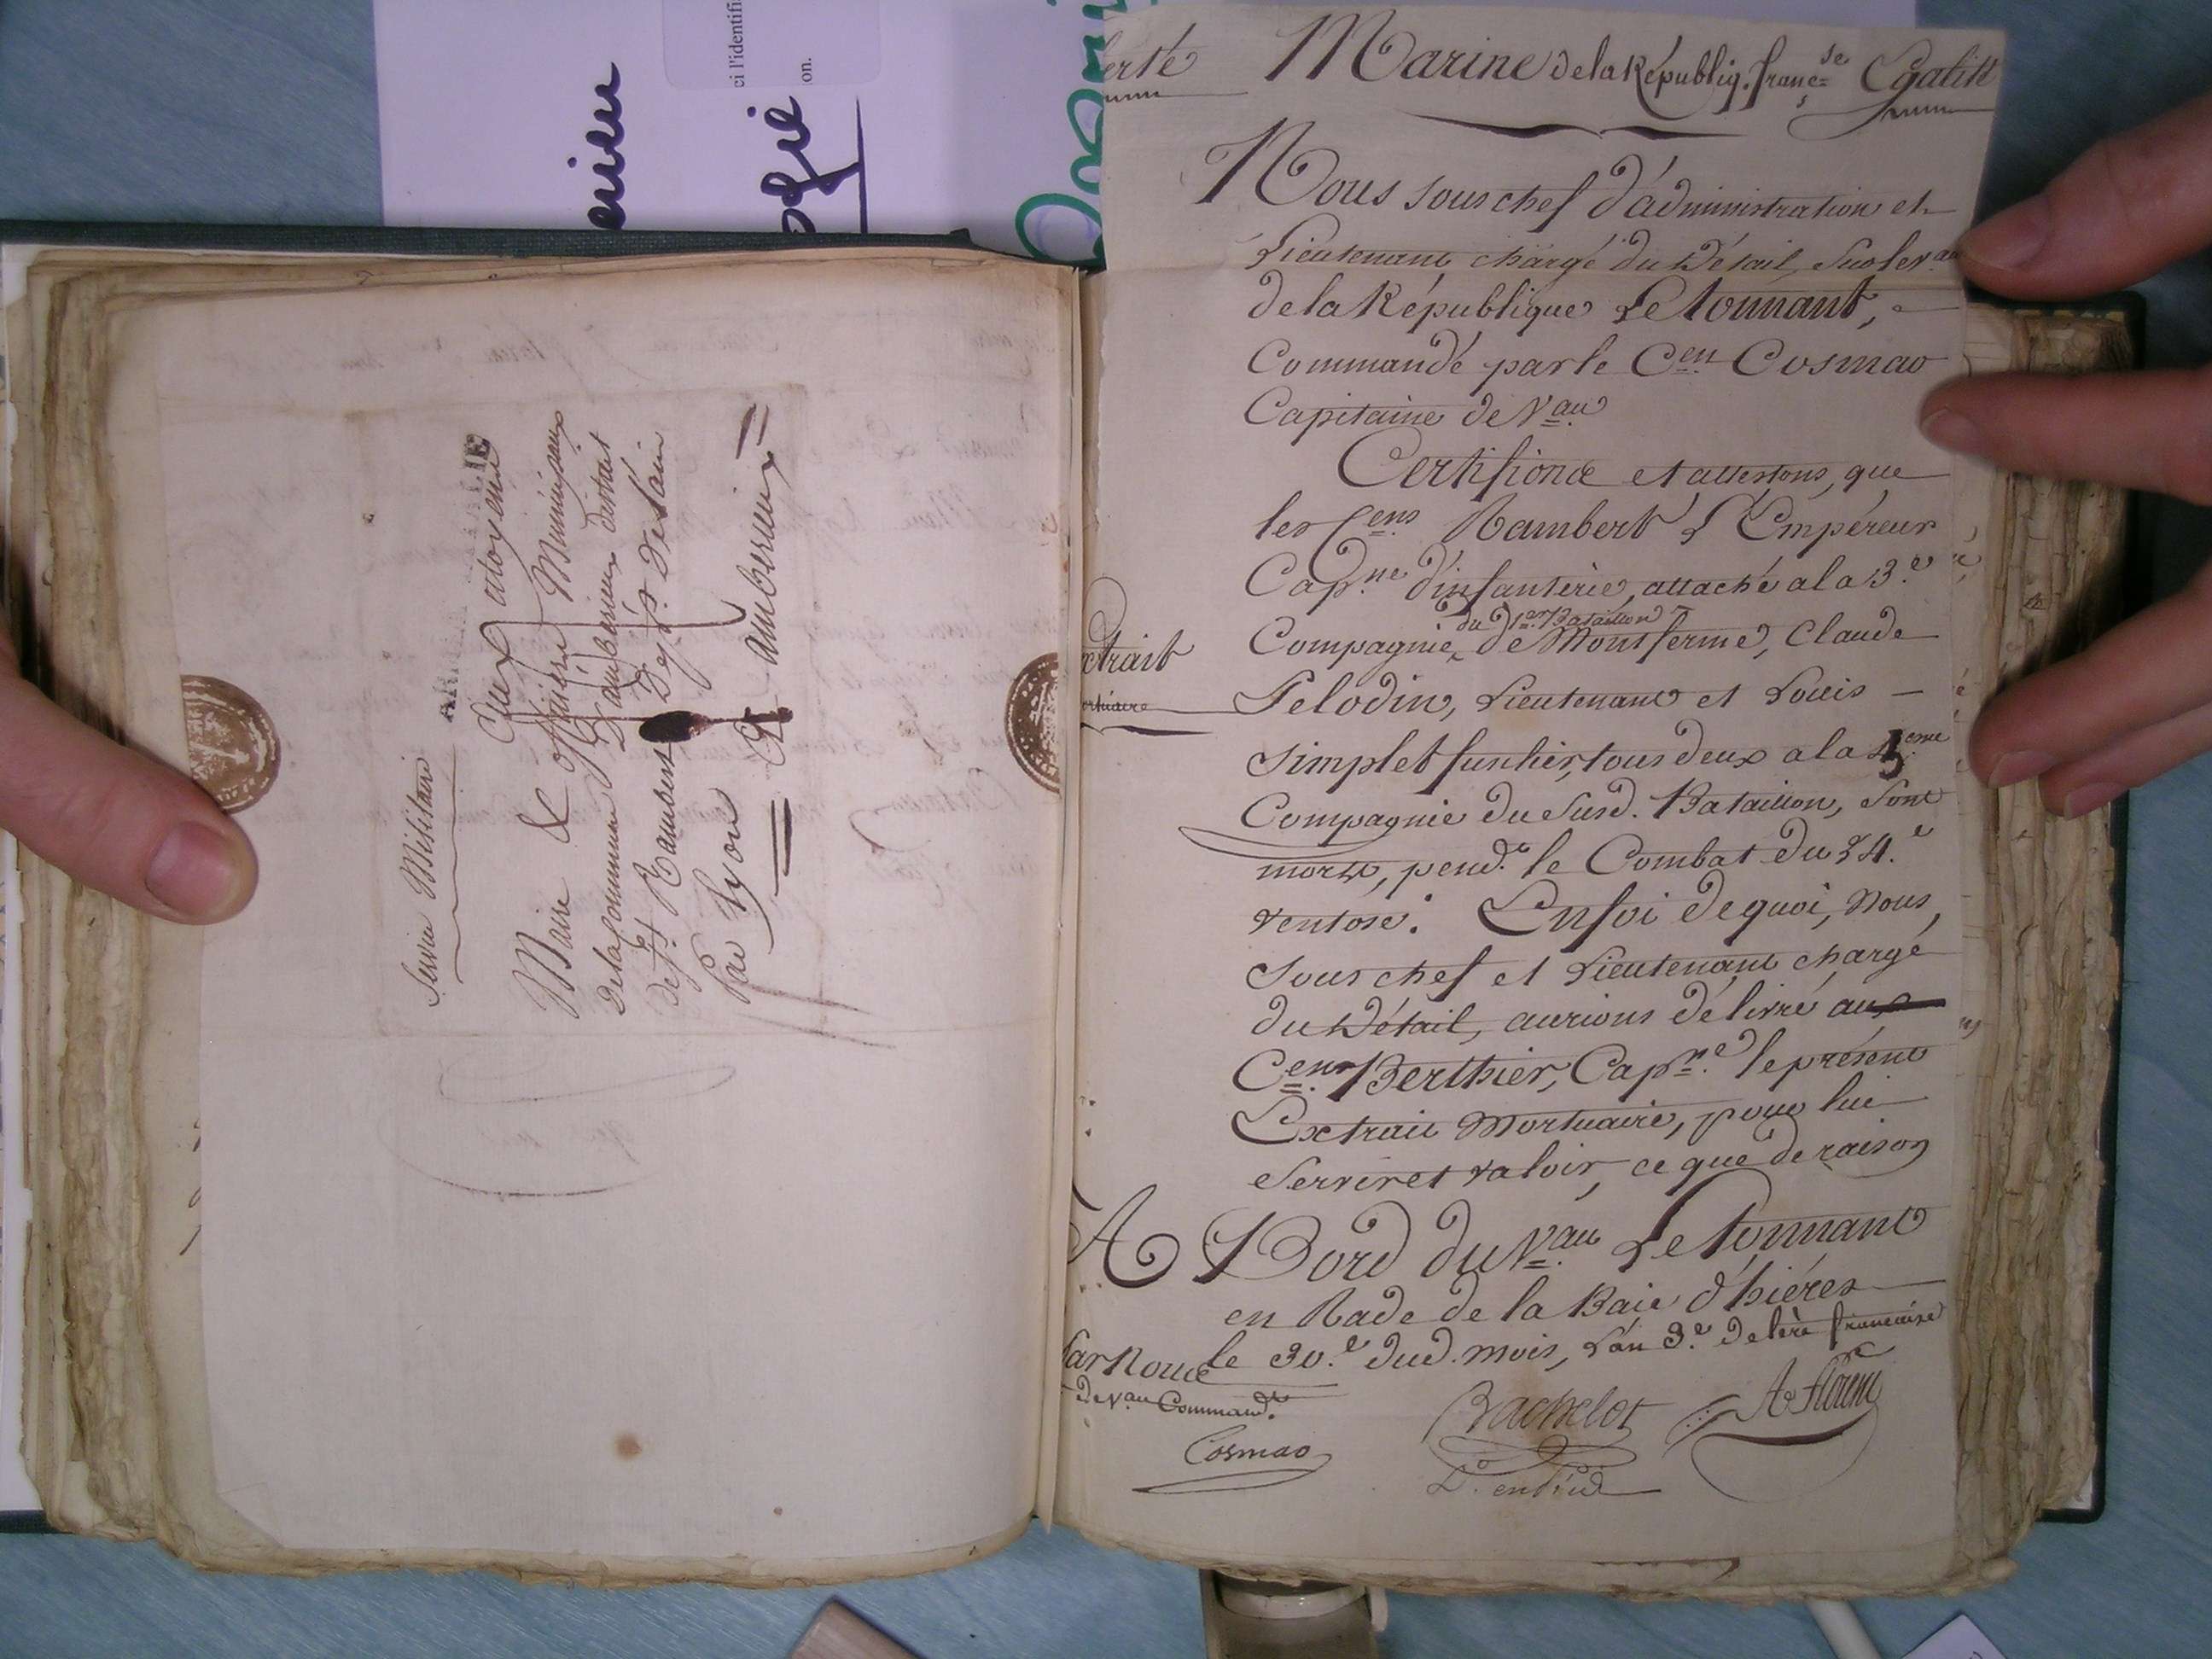 ci l'identifi
on.
Service Militaire
Aux citoyens
Maire & officiers Municipaux
de la Commune d'ambérieux district
de St Rambert Dept de Lain
Par Lyon à amberieux
erté Marine de la Républiq. franç.se Egalité
Nous sous chef d'administration et
Lieutenant chargé du Détail, Sur le v.au
de la République Le tonnant,
Commandé par le C.en Cosmao
Capitaine de V.au
Certifions et attestons, que
les C.ens Rambert L'Empéreur
Cap.ne d'infanterie, attaché a la 3.e
du 1.er Bataillon
Compagnie de Montferme, Claude
xtrait
Pelodin, Lieutenant et Louis
ortuaire
Simplet fusilier, tous deux a la 5.eme
Compagnie du Susd. Bataillon, Sont
morts, pend.t le Combat du 24.e
ventose. En foi de quoi, Nous,
Sous chef et Lieutenant chargé
du Détail, aurions délivré au
C.en Berthier, Cap.ne le présent
Extrait Mortuaire, pour lui
Servir et valoir, ce que de raison
A Bord du V.au Le Tonnant
en Rade de la Baie d'hiéres
le 30.e dud. mois, L'an 3.e de l'ère francaise
Par Nous
de V.au Command.t
Cosmao
Bachelot
L.t en pied